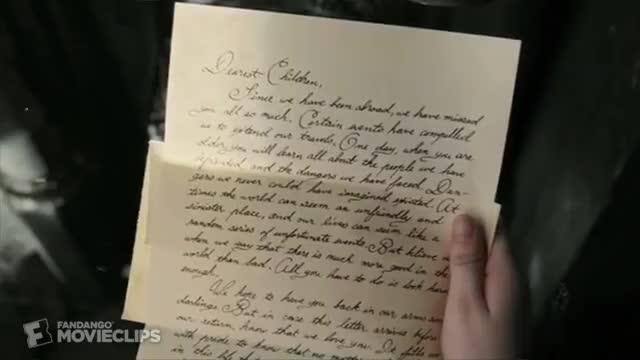 Dearest Children,
Since we have been abroad, we have missed
you all so much. Certain events have compelled
us to extend our travels. One day, when you are
older, you will learn all about the people we have
befriended and the dangers we have faced. Dan-
gers we never could have imagined existed. At
times the world can seem an unfriendly and
sinister place, and our lives can seem like a
random series of unfortunate events. But believe
when we say that there is much more good in the
world than bad. All you have to do is look hard
enough.
We hope to have you back in our arms soon
darlings. But in case this letter arrives before
our return, know that we love you. It fills
with pride to know that no
in this
FANDANGO
MOVIECLIPS